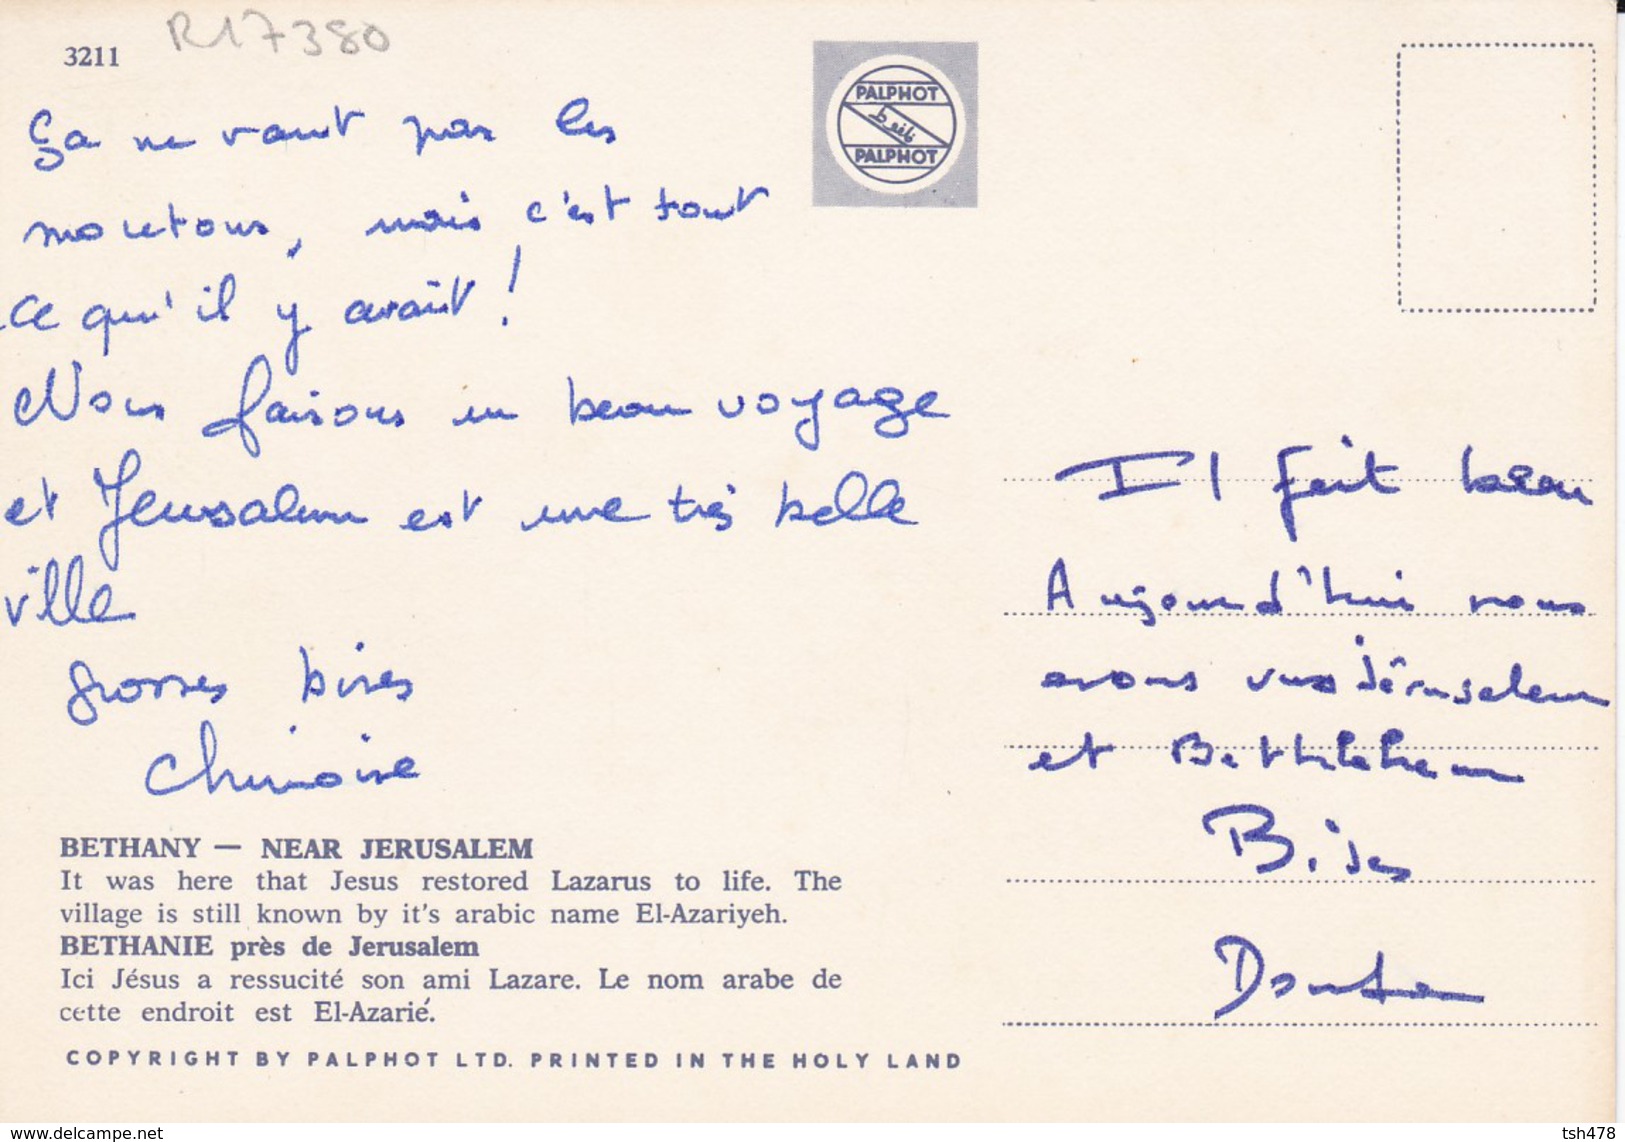 3211
R17380
PALPHOT
beib
PALPHOT
Ça ne vaut pas les
moutons, mais c'est tout
ce qu'il y avait !
Nous faisons un beau voyage
et Jerusalem est une très belle
ville
grosses bises
Chinoise
BETHANY — NEAR JERUSALEM
It was here that Jesus restored Lazarus to life. The
village is still known by it's arabic name El-Azariyeh.
BETHANIE près de Jerusalem
Ici Jésus a ressucité son ami Lazare. Le nom arabe de
cette endroit est El-Azarié.
COPYRIGHT BY PALPHOT LTD. PRINTED IN THE HOLY LAND
Il fait beau
Aujourd'hui nous
avons vus Jérusalem
et Bethlehem
Bises
www.delcampe.net
tsh478